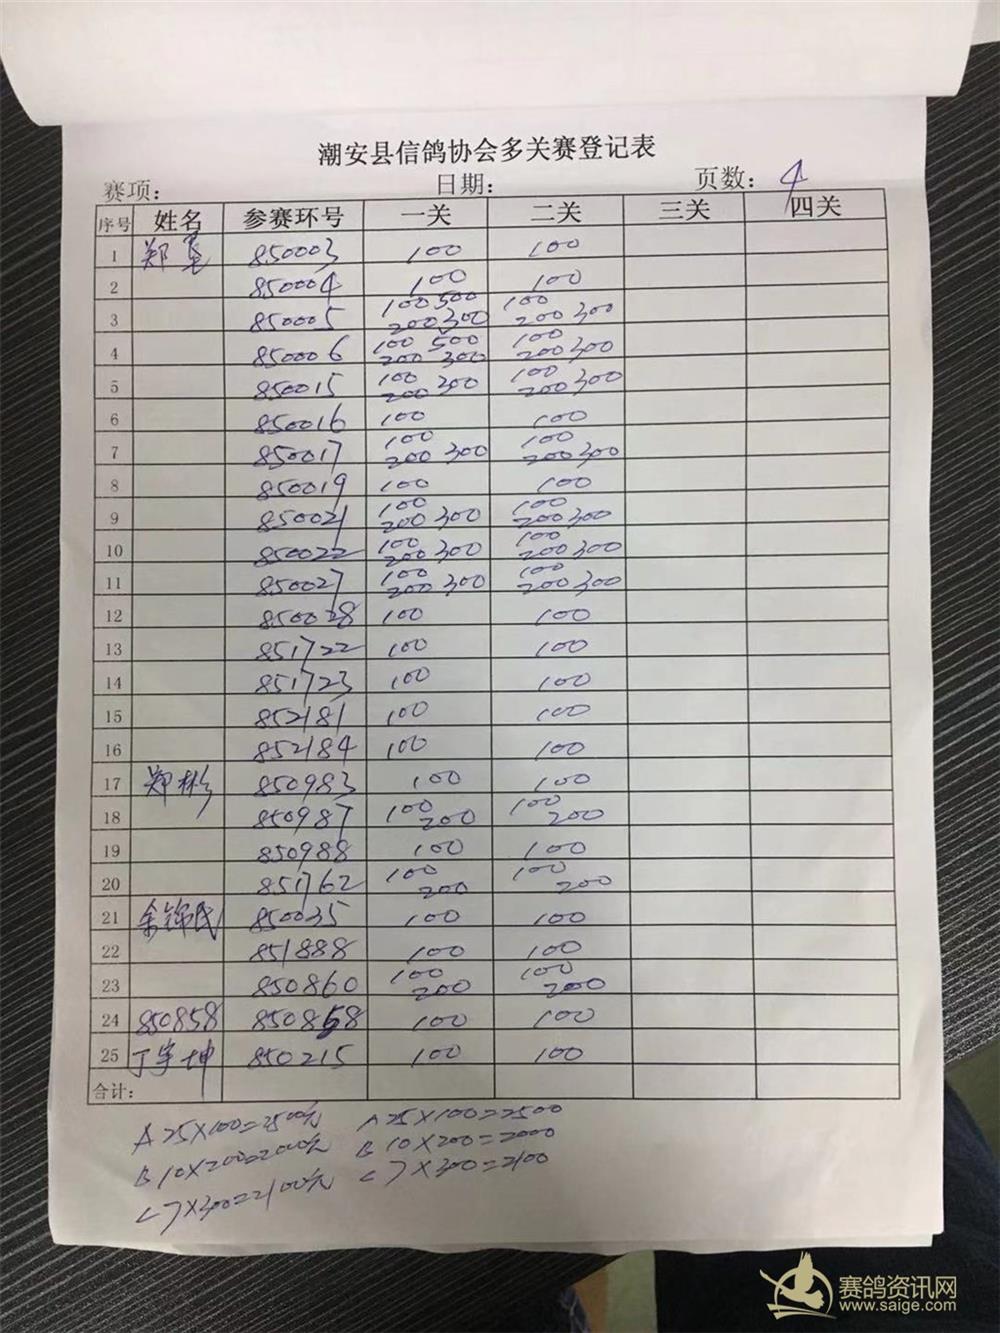 潮安县信鸽协会多关赛登记表
赛项： 日期： 页数：4
序号 姓名 参赛环号 一关 二关 三关 四关
1 郑 850003 100 100
2 850004 100 100
3 850005 100 500 200 300 100 200 300
4 850006 100 500 200 300 100 200 300
5 850015 100 200 300 100 200 300
6 850016 100 100
7 850017 100 200 300 100 200 300
8 850019 100 100
9 850021 100 200 300 100 200 300
10 850022 100 200 300 100 200 300
11 850027 100 200 300 100 200 300
12 850028 100 100
13 851722 100 100
14 851723 100 100
15 852181 100 100
16 852184 100 100
17 郑彬 850983 100 100
18 850987 100 200 100 200
19 850988 100 100
20 851762 100 200 100 200
21 余锦民 850035 100 100
22 851888 100 100
23 850860 100 200 100 200
24 850858 850858 100 100
25 丁宇坤 850215 100 100
合计：
A 25×100=2500元 A 25×100=2500
B 10×200=2000元 B 10×200=2000
C 7×300=2100元 C 7×300=2100
赛鸽资讯网
www.saige.com